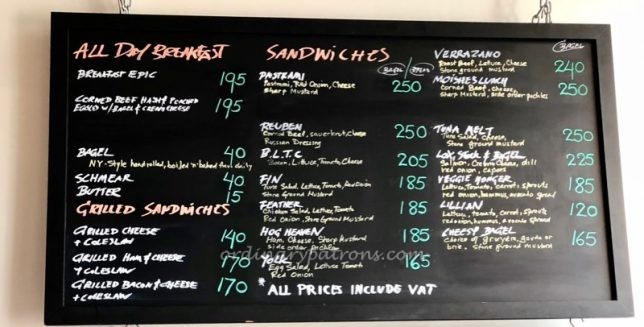 ALL DAY BREAKFAST
BREAKFAST EPIC 195
CORNED BEEF HASH & POACHED 195
EGGS W/ BAGEL & CREAM CHEESE
BAGEL 40
NY-Style hand rolled, boiled 'n' baked daily
SCHMEAR 40
BUTTER 15
GRILLED SANDWICHES
GRILLED CHEESE 140
+ COLESLAW
GRILLED HAM & CHEESE 170
+ COLESLAW
GRILLED BACON & CHEESE 170
+ COLESLAW
SANDWICHES
BAGEL
PASTRAMI 250
Pastrami, Red Onion, Cheese
Sharp Mustard
REUBEN 250
Corned Beef, sauerkraut, cheese
Russian Dressing
B.L.T.C 205
Bacon, Lettuce, Tomato, Cheese
FIN 185
Tuna Salad, Lettuce, Tomato, Red Onion
Stone Ground Mustard
FEATHER 185
Chicken Salad, Lettuce, Tomato
Red Onion, Stone Ground Mustard
HOG HEAVEN 185
Ham, Cheese, Sharp Mustard
side order pickles
YOLK 165
Egg Salad, Lettuce Tomato
Red Onion
* ALL PRICES INCLUDE VAT
BAGEL
VERRAZANO 240
Roast Beef, Lettuce, Cheese
Stone ground mustard
MOISHES LUNCH 250
Corned Beef, cheese,
Sharp Mustard, side order pickles
TUNA MELT 250
Tuna Salad, Cheese,
Stone ground mustard
LOX, SEUL & BAGEL 225
Salmon, Cream Cheese, dill
red onion, capers
VEGGIE MONGER 185
Lettuce, Tomato, carrot, sprouts
red onion, hummus, avocado spread
LILLIAN 120
Lettuce, tomato, carrot, sprouts
red onion, hummus, avocado spread
CHEESY BAGEL 165
choice of gruyere, gouda or
brie, stone ground mustard
ordinarypatrons.com